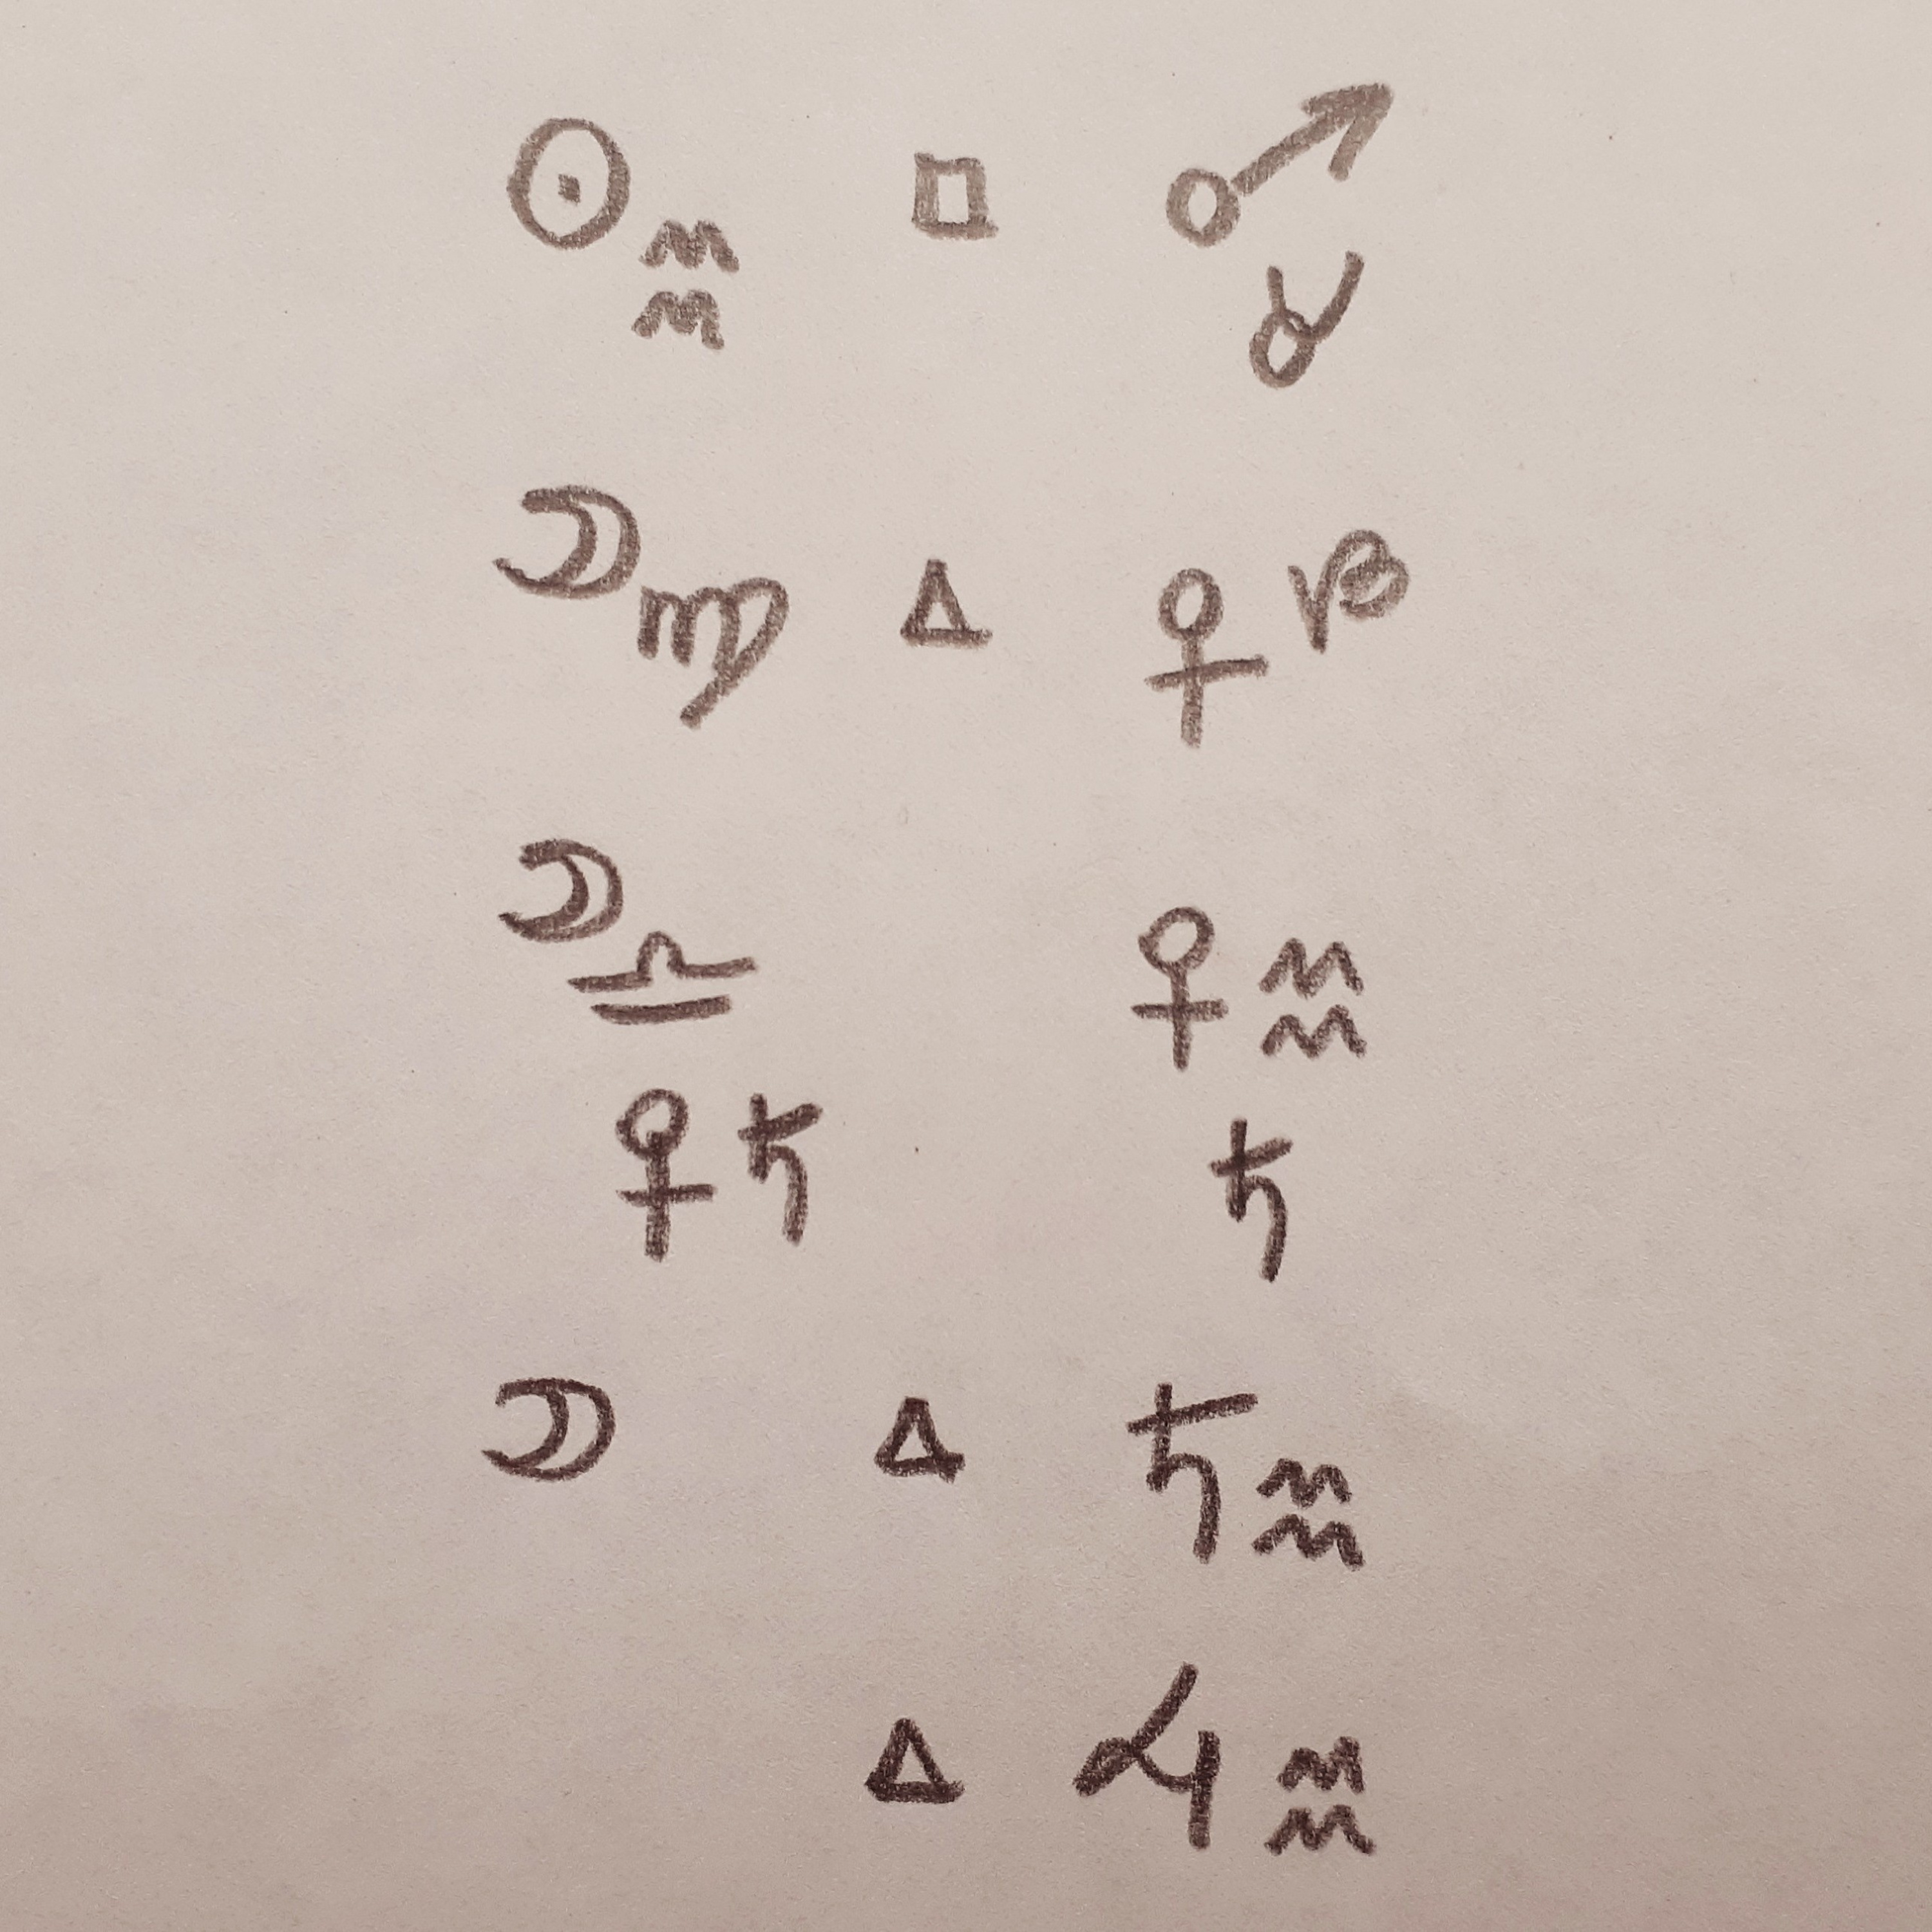 ☉♒ □ ♂♉
☽♍ △ ♀♑
☽♎ ♀♒
♀♄ ♄
☽ △ ♄♒
△ ♃♒